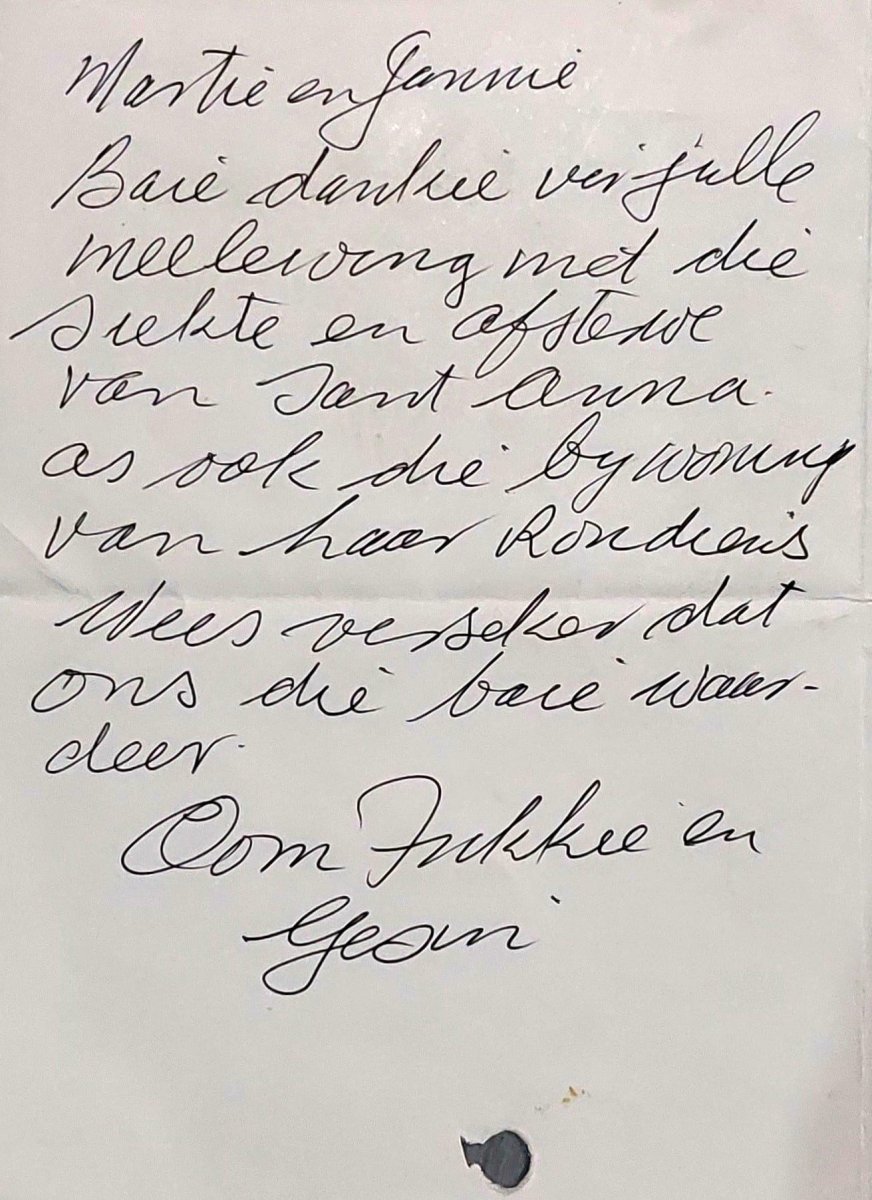 Martie en Jannie
Baie dankie vir julle
meelewing met die
siekte en afsterwe
van Tant Anna.
as ook die bywoning
van haar Roudiens
Wees verseker dat
ons die baie waar-
deer.
Oom Fukkie en
Gesin